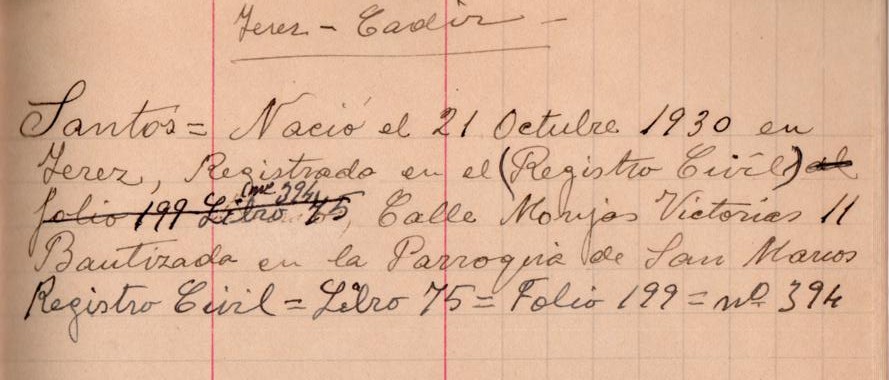 Jerez - Cadiz -
Santos = Nació el 21 Octubre 1930 en
Jerez, Registrada en el (Registro Civil) al
(nº 394)
folio 199 Libro 75, Calle Monjas Victorias 11
Bautizada en la Parroquia de San Marcos
Registro Civil = Libro 75 = Folio 199 = nº 394